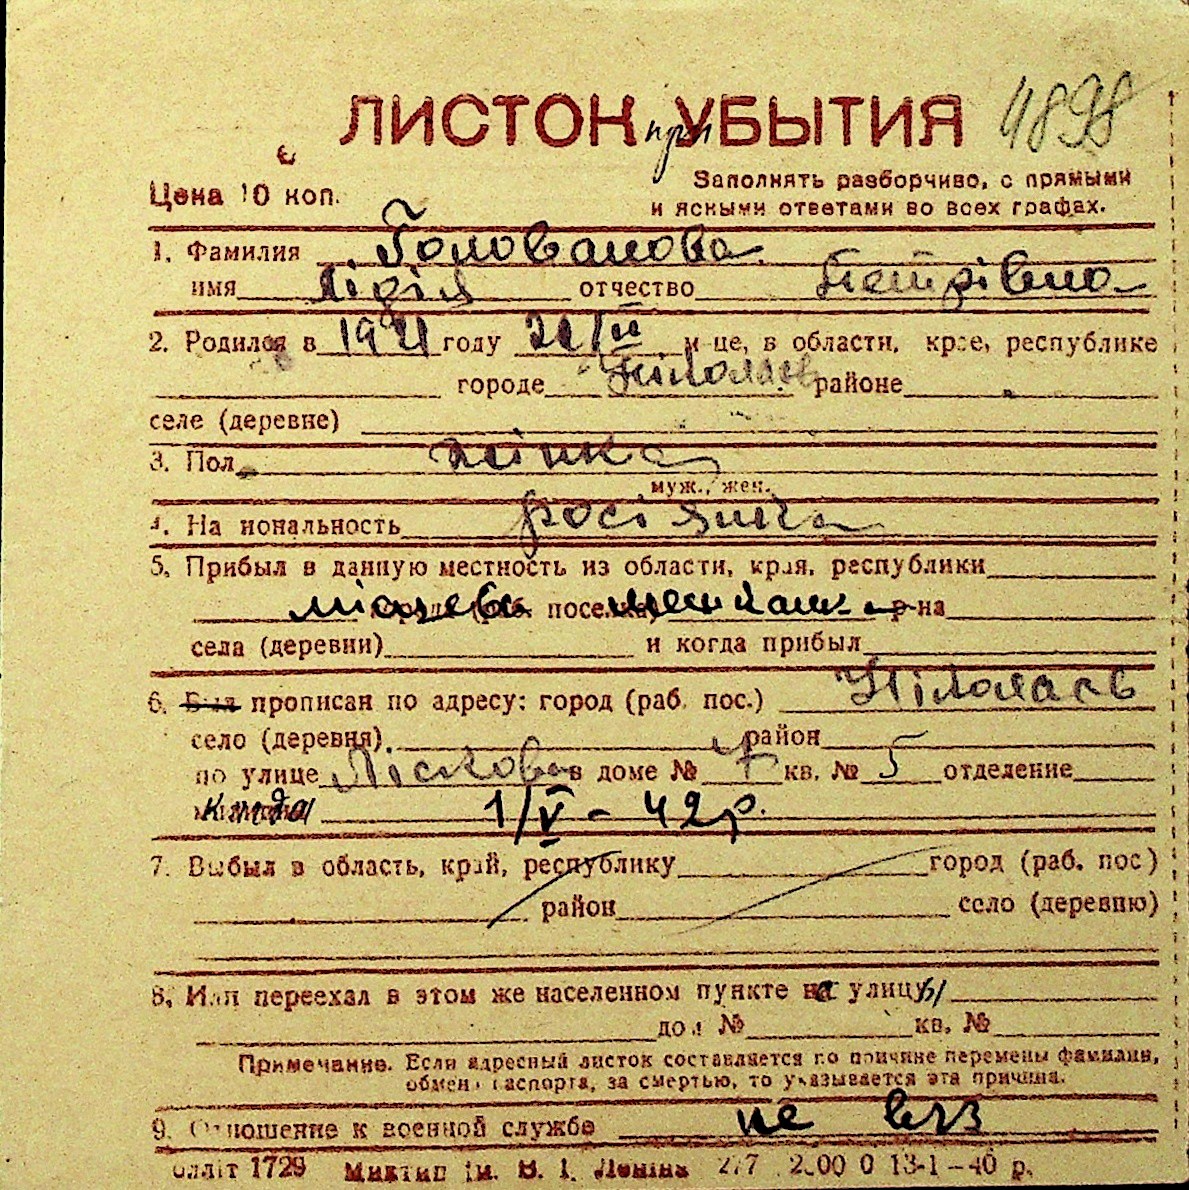 ЛИСТОК при УБЫТИЯ 4898
Цена 10 коп.
Заполнять разборчиво, с прямыми
и ясными ответами во всех графах.
1. Фамилия Голованова
имя Лідія отчество Петрівна
2. Родился в 1921 году м-це, в области, крае, республике
городе Ніколаєв районе
селе (деревне)
3. Пол жінка
муж., жен.
4. Национальность росіянка
5. Прибыл в данную местность из области, края, республики
місцева поселка) р-на
села (деревни) и когда прибыл
6. Был прописан по адресу: город (раб. пос.) Ніколаєв
село (деревня) район
по улице Лєскова в доме № 7 кв. № 5 отделение
1/V - 42 р.
7. Выбыл в область, край, республику город (раб. пос)
район село (деревню)
8. Или переехал в этом же населенном пункте на улицу
дом № кв. №
Примечание. Если адресный листок составляется по причине перемены фамилии,
обмена паспорта, за смертью, то указывается эта причина.
9. Отношение к военной службе не в/зз
1729 ім. В. І. Леніна 13-1-40 р.